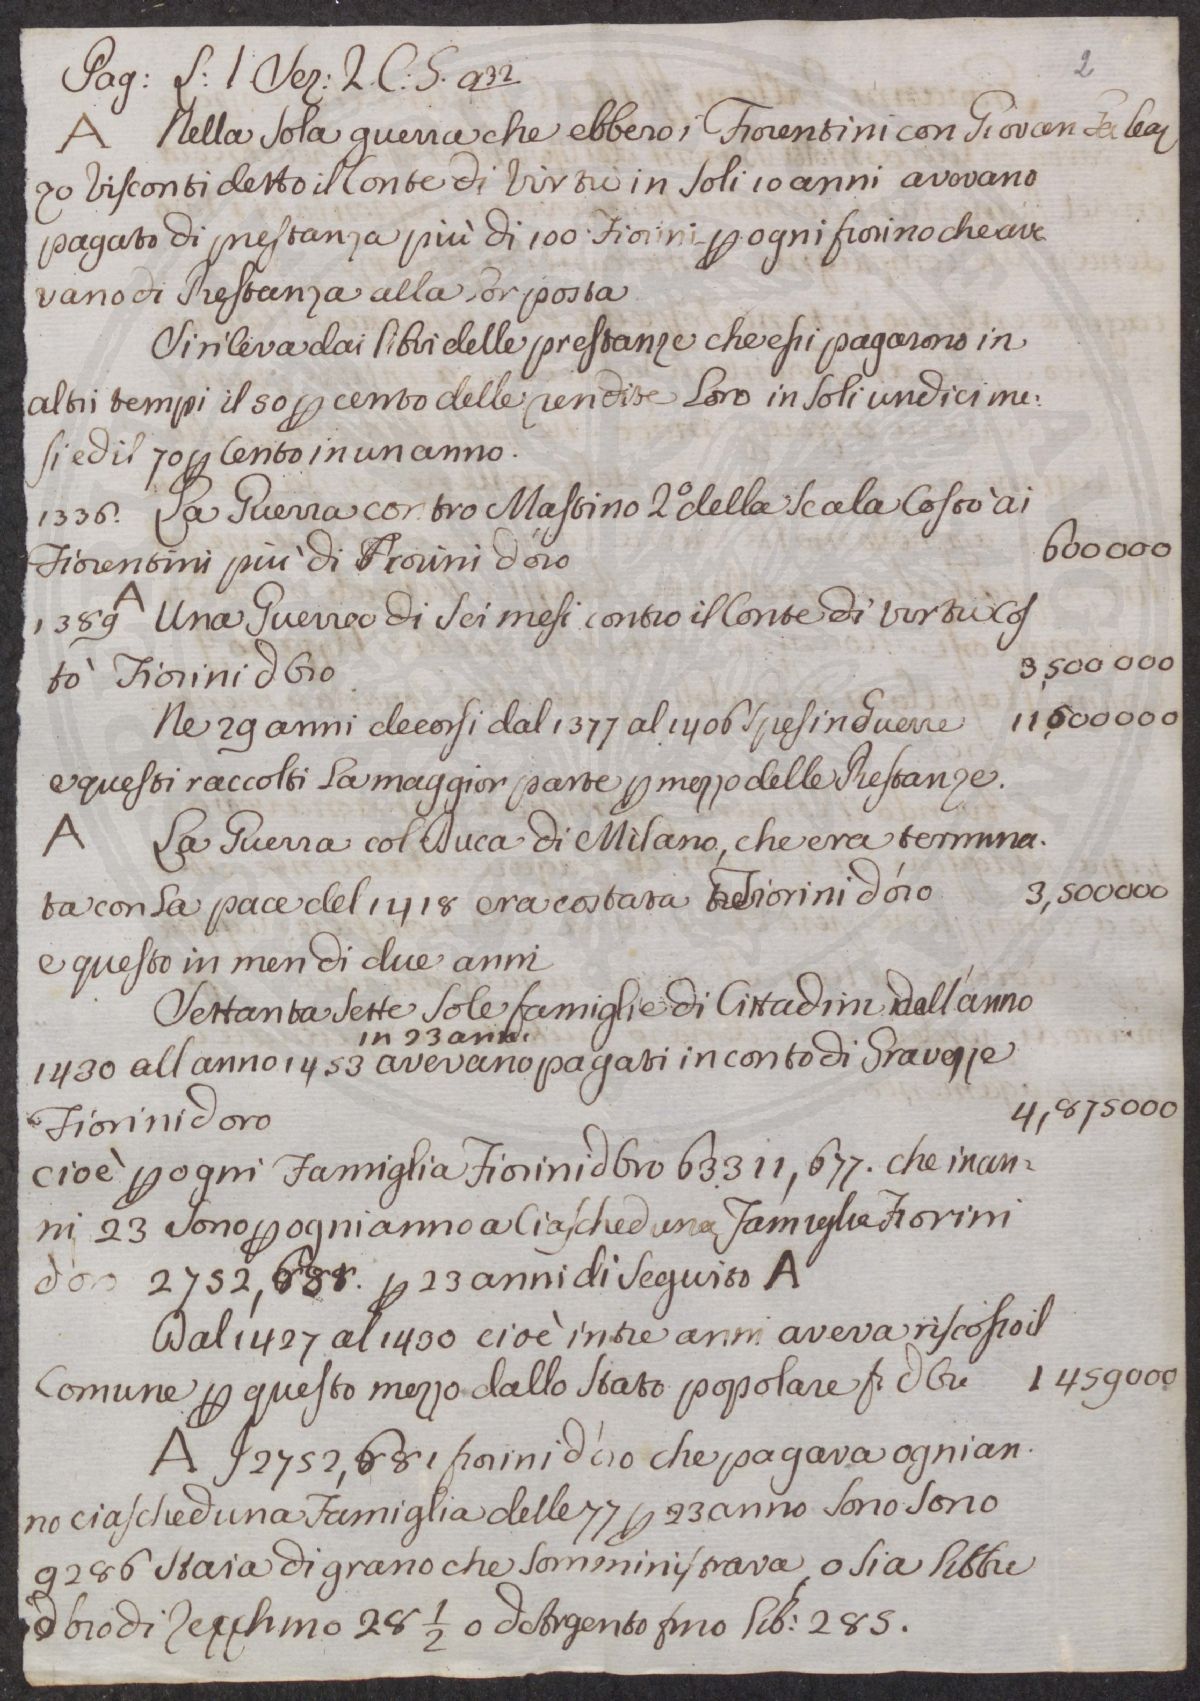 2
Pag: S: 1 Sez: 2. C. S. a 32
A Nella sola guerra che ebbero i Fiorentini con Giovan Galeaz
zo Visconti detto il Conte di Virtù in soli 10 anni avevano
pagato di prestanza più di 100 Fiorini p ogni fiorino che ave
vano di Prestanza alla lor posta
Si rileva dai libri delle prestanze che essi pagarono in
altri tempi il 50 p cento delle rendite Loro in soli undici me:
si ed il 70 p Cento in un anno.
1336. La Guerra contro Mastino 2° della Scala Costò ai
Fiorentini più di Fiorini d'oro 600000
1389 A Una Guerra di Sei mesi contro il Conte di Virtù Cos
tò Fiorini d'Oro 3,500000
Ne 29 anni decorsi dal 1377 al 1406 Spesi in Guerre 11,500000
e questi raccolti La maggior parte p mezzo delle Prestanze.
A La Guerra col Duca di Milano, che era termina.
ta con La pace del 1418 era costata Fiorini d'oro 3,500000
e questo in men di due anni
Settanta Sette Sole famiglie di Cittadini dall'anno
in 23 anni
1430 all anno 1453 avevano pagati in conto di Gravezze
Fiorini d oro 4,875000
cioè p ogni Famiglia Fiorini d'Oro 63311,677. che in an=
ni 23 Sono p ogni anno a Ciascheduna Famiglia Fiorini
d'oro 2752,688. p 23 anni di Seguito A
Dal 1427 al 1430 cioè in tre anni aveva riscosso il
Comune p questo mezzo dallo Stato popolare fi d'Oro 1459000
A I 2752,681 fiorini d'oro che pagava ogni an.
no ciascheduna Famiglia delle 77 p 23 anno Sono Sono
9286 Staia di grano che somministrava, o sia libbre
d'Oro di Zecchino 28 1/2 o d'Argento fino lib: 285.